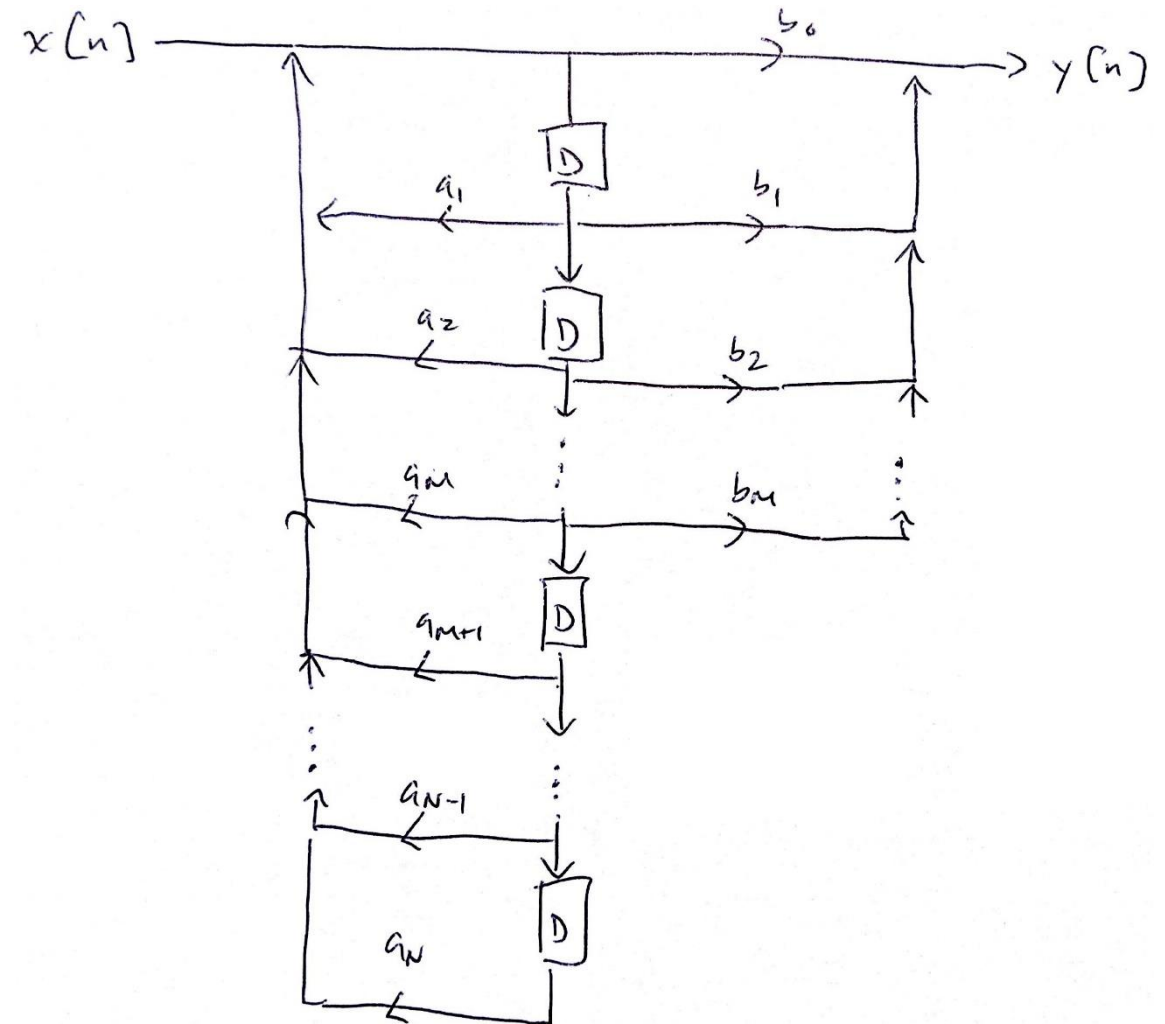 x[n]
b₀
y[n]
D
a₁
b₁
D
a₂
b₂
a_M
b_M
D
a_{M+1}
a_{N-1}
D
a_N